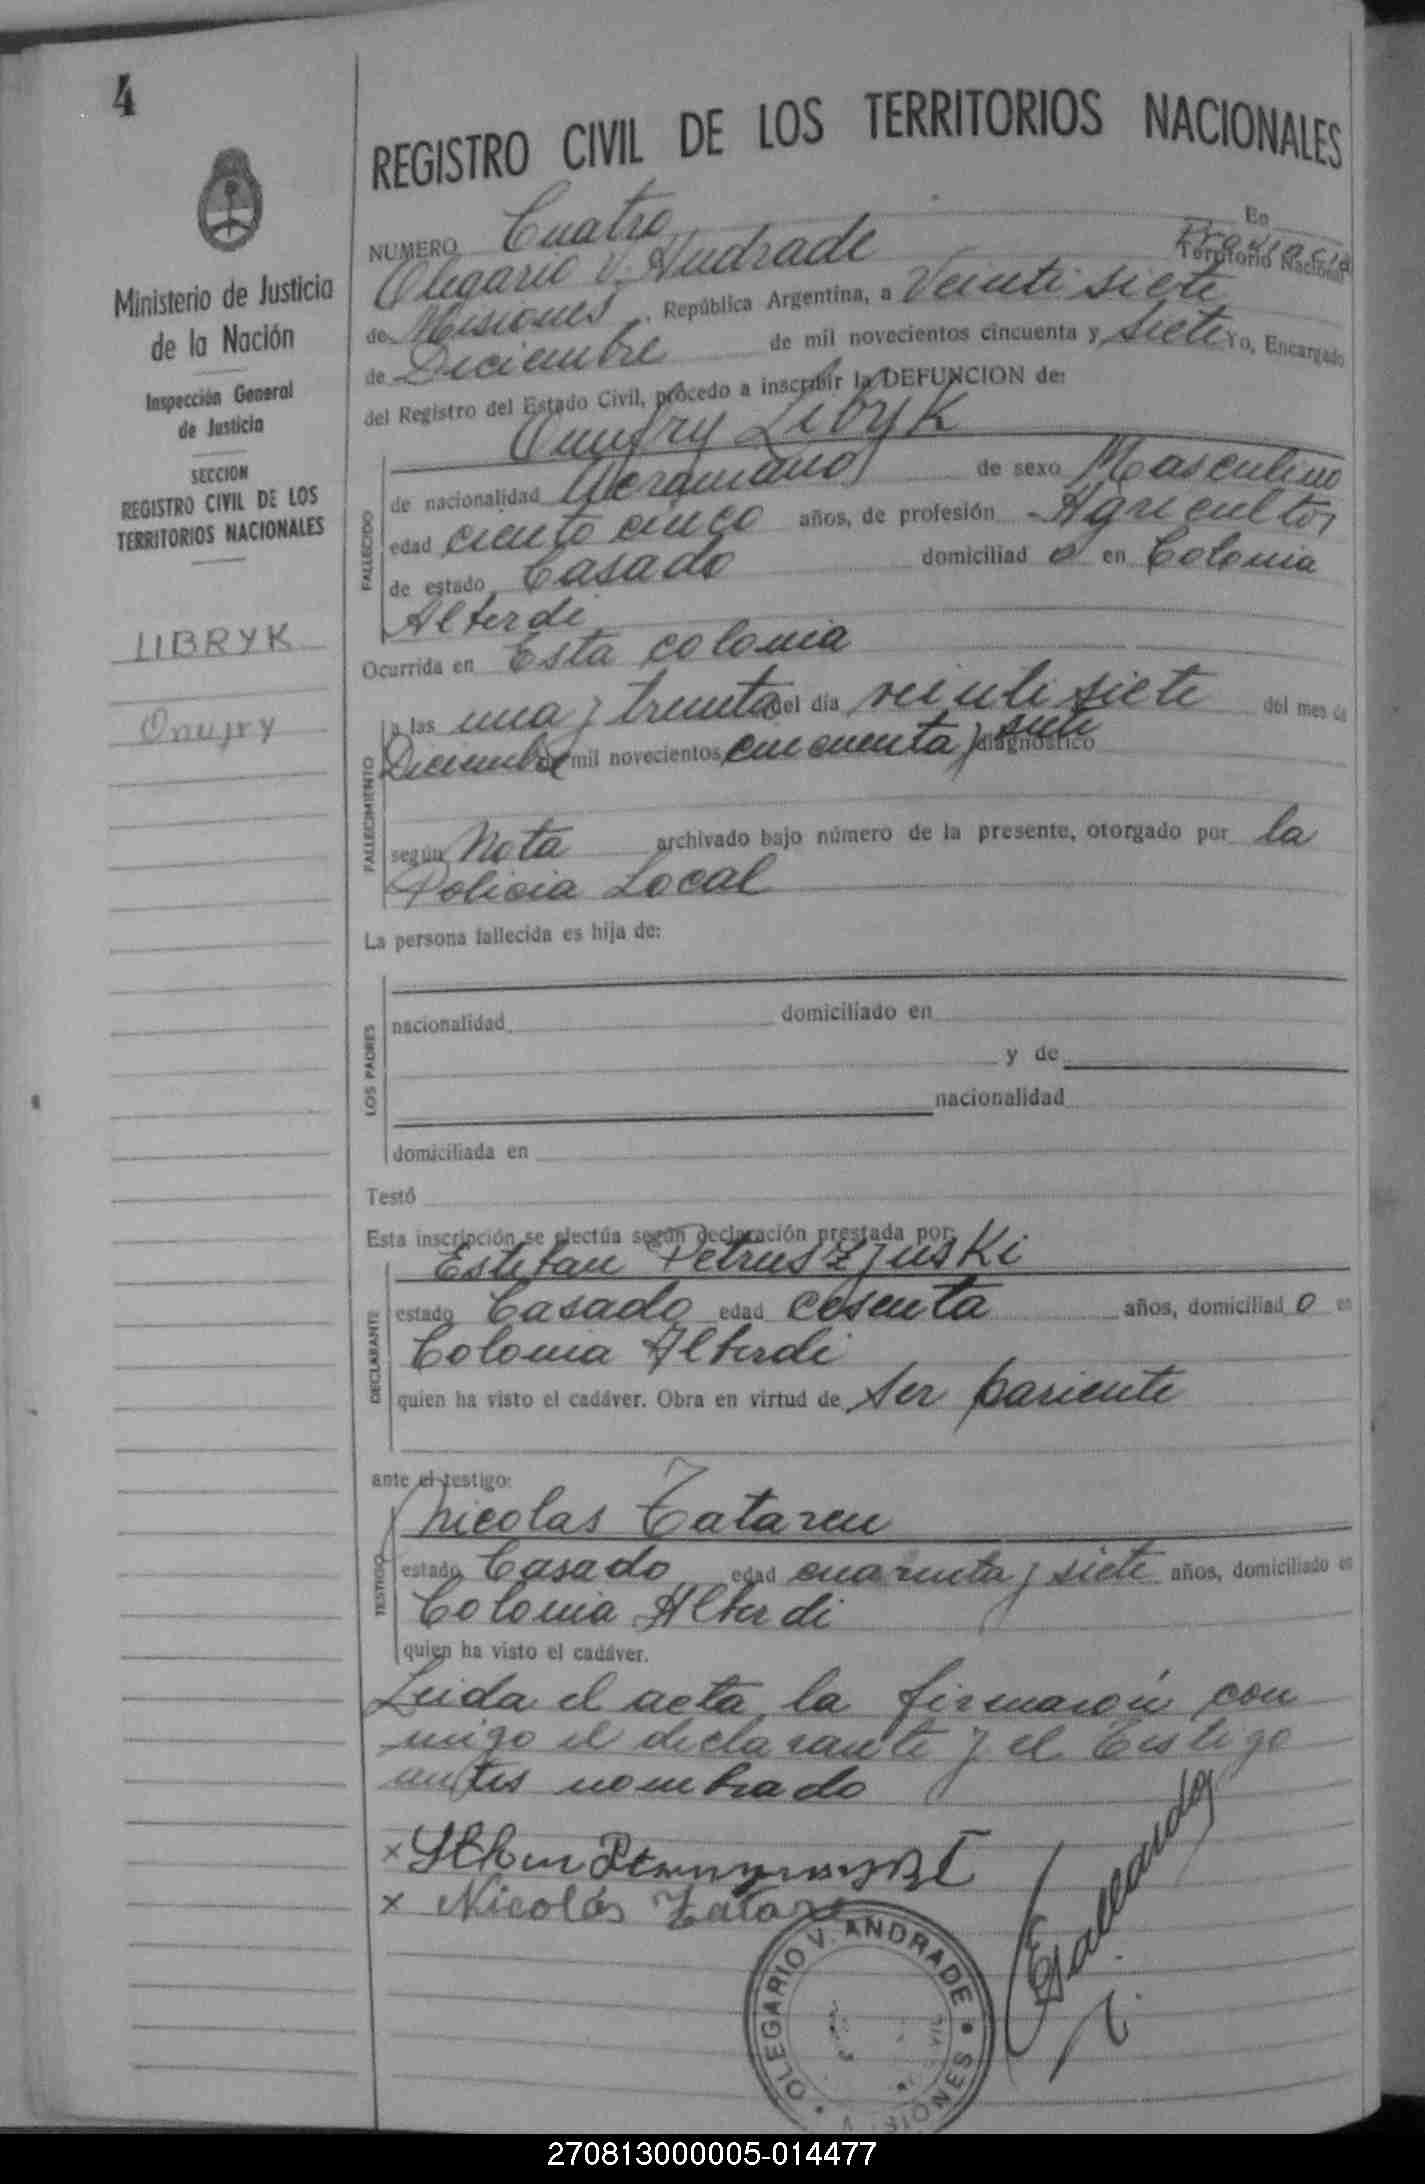 4
REGISTRO CIVIL DE LOS TERRITORIOS NACIONALES
Ministerio de Justicia
de la Nación
Inspección General
de Justicia
SECCION
REGISTRO CIVIL DE LOS
TERRITORIOS NACIONALES
LIBRYK
Onufry
NUMERO Cuatro En
Olegario V. Andrade Provincia Territorio Nacional
de Misiones, República Argentina, a Veinti siete
de Diciembre de mil novecientos cincuenta y siete Yo, Encargado
del Registro del Estado Civil, procedo a inscribir la DEFUNCION de:
Onufry Libryk
FALLECIDO
de nacionalidad Ucraniano de sexo Masculino
edad ciento cinco años, de profesión Agricultor
de estado Casado domiciliad o en Colonia
Alberdi
Ocurrida en Esta colonia
FALLECIMIENTO
a las una y treinta del día veinti siete del mes de
Diciembre mil novecientos cincuenta y siete diagnóstico
según Nota archivado bajo número de la presente, otorgado por la
Policia Local
La persona fallecida es hija de:
LOS PADRES
nacionalidad domiciliado en
y de
nacionalidad
domiciliada en
Testó
Esta inscripción se efectúa según declaración prestada por:
Esteban Petruszynski
DECLARANTE
estado Casado edad cesenta años, domiciliad o en
Colonia Alberdi
quien ha visto el cadáver. Obra en virtud de ser pariente
ante el testigo:
Nicolas Tataren
TESTIGO
estado Casado edad cuarenta y siete años, domiciliado en
Colonia Alberdi
quien ha visto el cadáver.
Leida el acta la firmaron con
migo el declarante y el Testigo
antes nombrado
x
x Nicolás
OLEGARIO V. ANDRADE
270813000005-014477